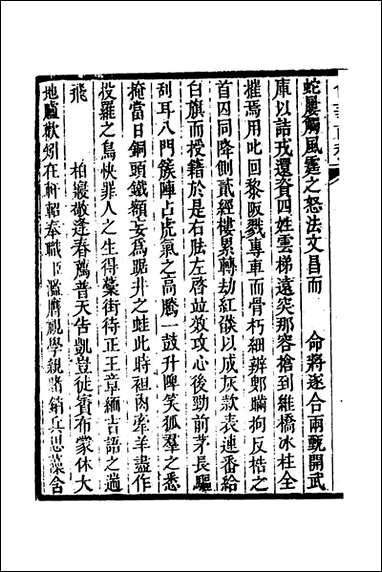 蛇屢觸風霆之怒法文昌而　命將逐合兩甄開武
庫以詰戎還資四姓雲梯遠突那容搶到維橋冰柱全
摧焉用叱回黎阪戮專車而骨朽細辨鄋瞞拘反梏之
首囚同降側貳經樓累轉劫紅𦦨以成灰款表連番給
白旗而授籍於是右胠左啓竝效攻心後勁前茅長驅
刮耳八門簇陣占虎氣之高騰一鼓升陴笑狐羣之悉
掩當日銅頭鐵額妄爲踞井之蛙此時袒肉牽羊盡作
投羅之鳥快罪人之生得藁街待正王章緬古語之遄
飛　柏寢敬逢春薦普天告凱豈徒賓布蒙休大
地臚歡矧在軒軺奉職臣濫膺視學親睹銷兵思藻合